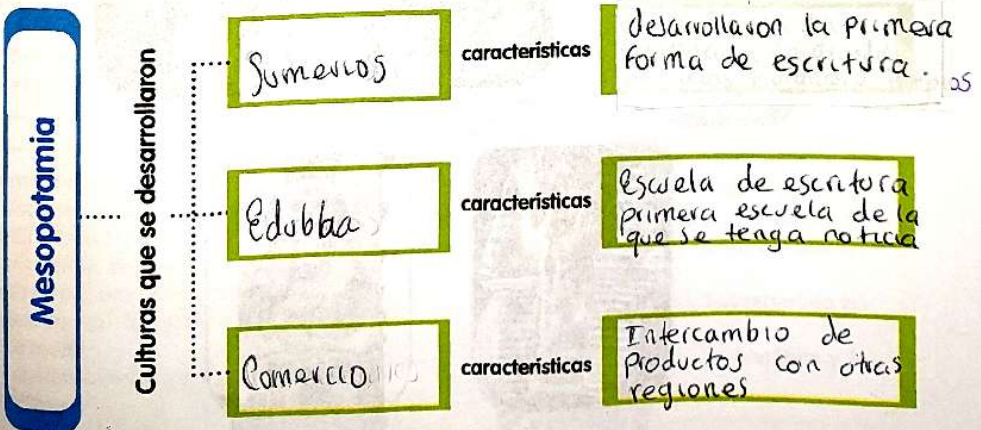 Mesopotamia
Culturas que se desarrollaron
Sumerios
características
desarrollaron la primera
forma de escritura.
25
Edubba
características
Escuela de escritura
primera escuela de la
que se tenga noticia
Comercio
características
Intercambio de
productos con otras
regiones